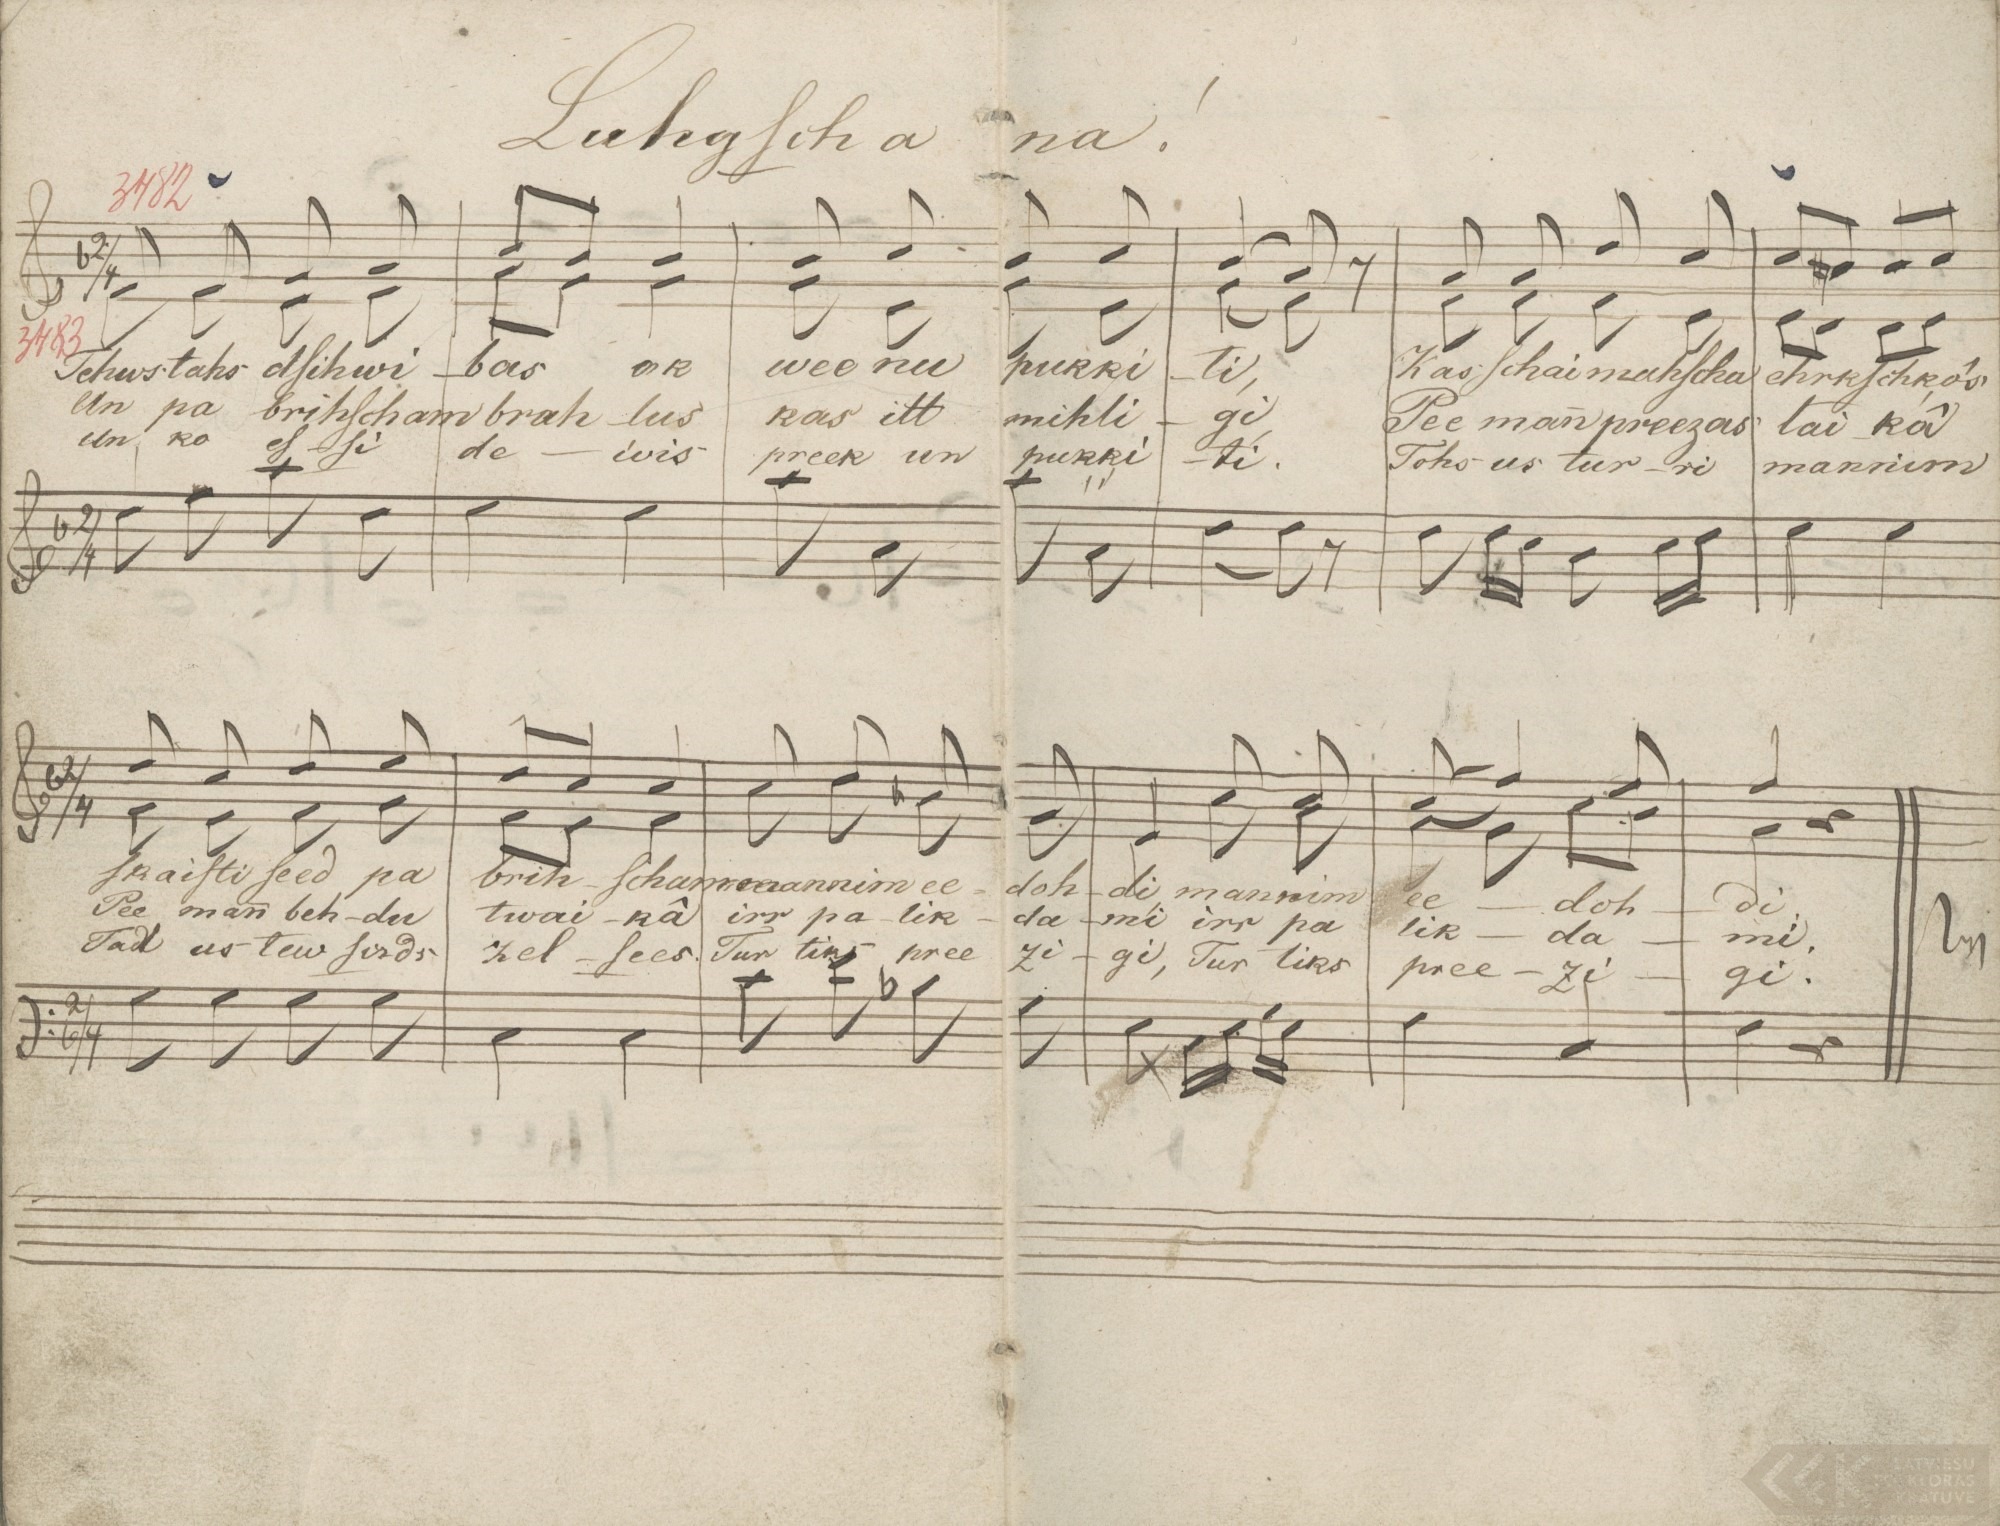 Luhgschana!
3482
3483
Tehws tahs dsihwi - bas ok wee nu pukki - ti, Kas schai muhscha ehrkschkôs
Un pa brihscham brah - lus kas itt mihli - gi, Pee mañ preezas tai - kâ
Un ko es - si de - wis preek un pukki - ti. Tohs us tur - ri mannim
skaisti seed pa brih - scham mannim ee - doh - di, mannim ee - doh - di,
Pee mañ beh - du twai - kâ irr pa - lik - da - mi irr pa lik - da - mi.
Tad us tew sirds zel - sees. Tur tiks pree zi - gi, Tur tiks pree - zi - gi.
LATVIEŠU
FOLKLORAS
KRĀTUVE